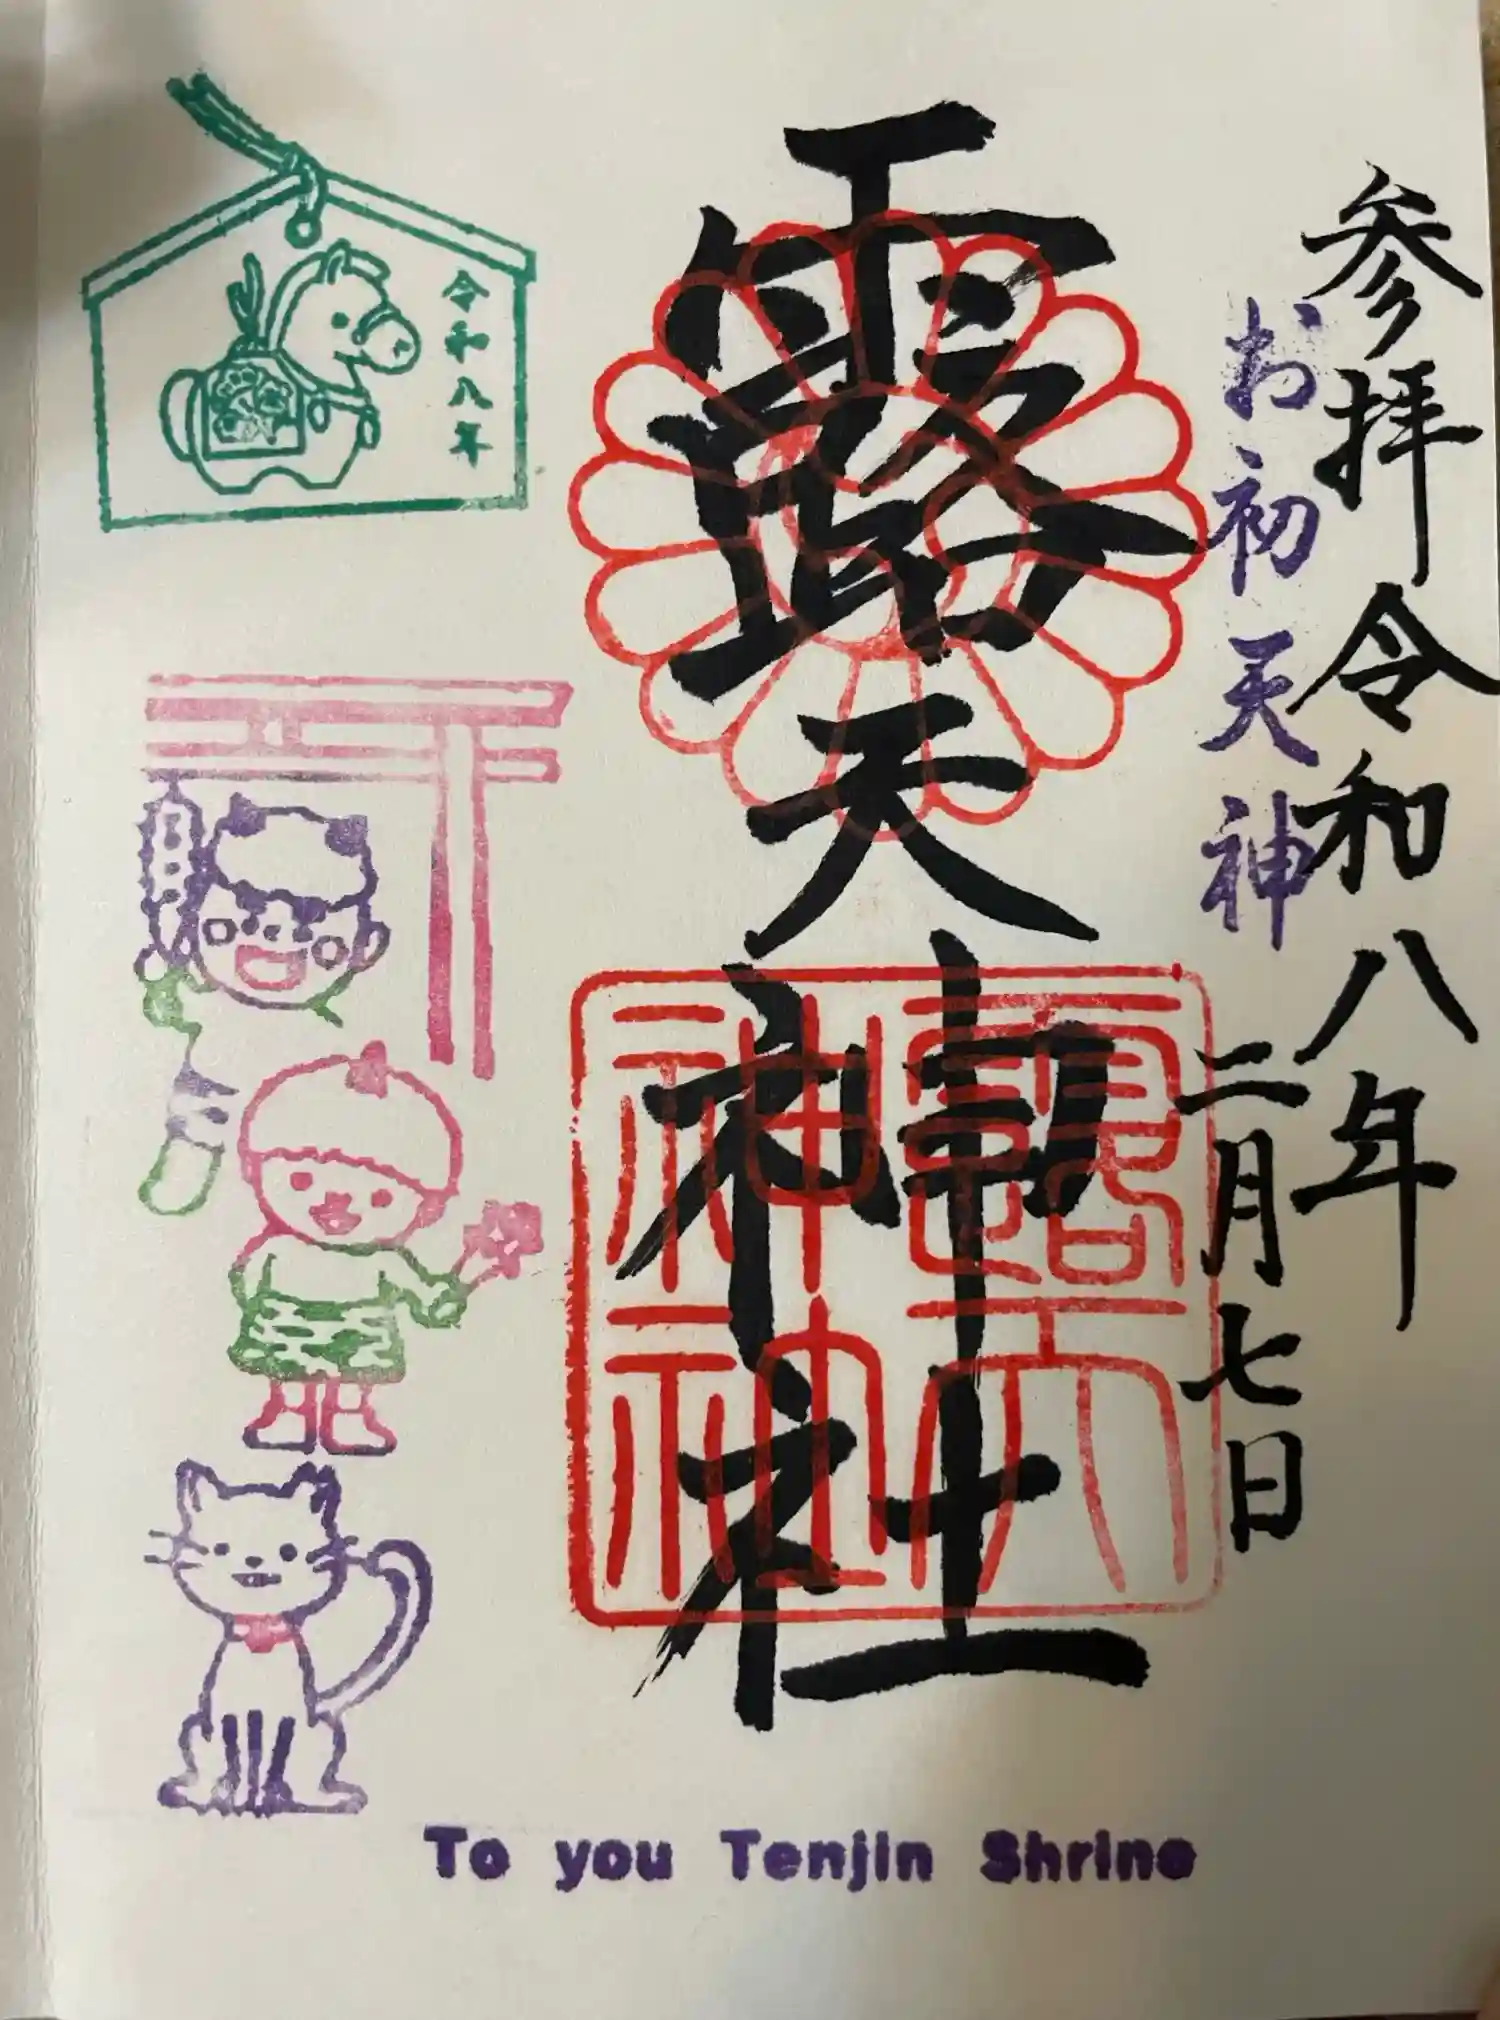 参拝 令和八年
二月七日
お初天神
露天神社
露天
神社
令和八年
To you Tenjin Shrine